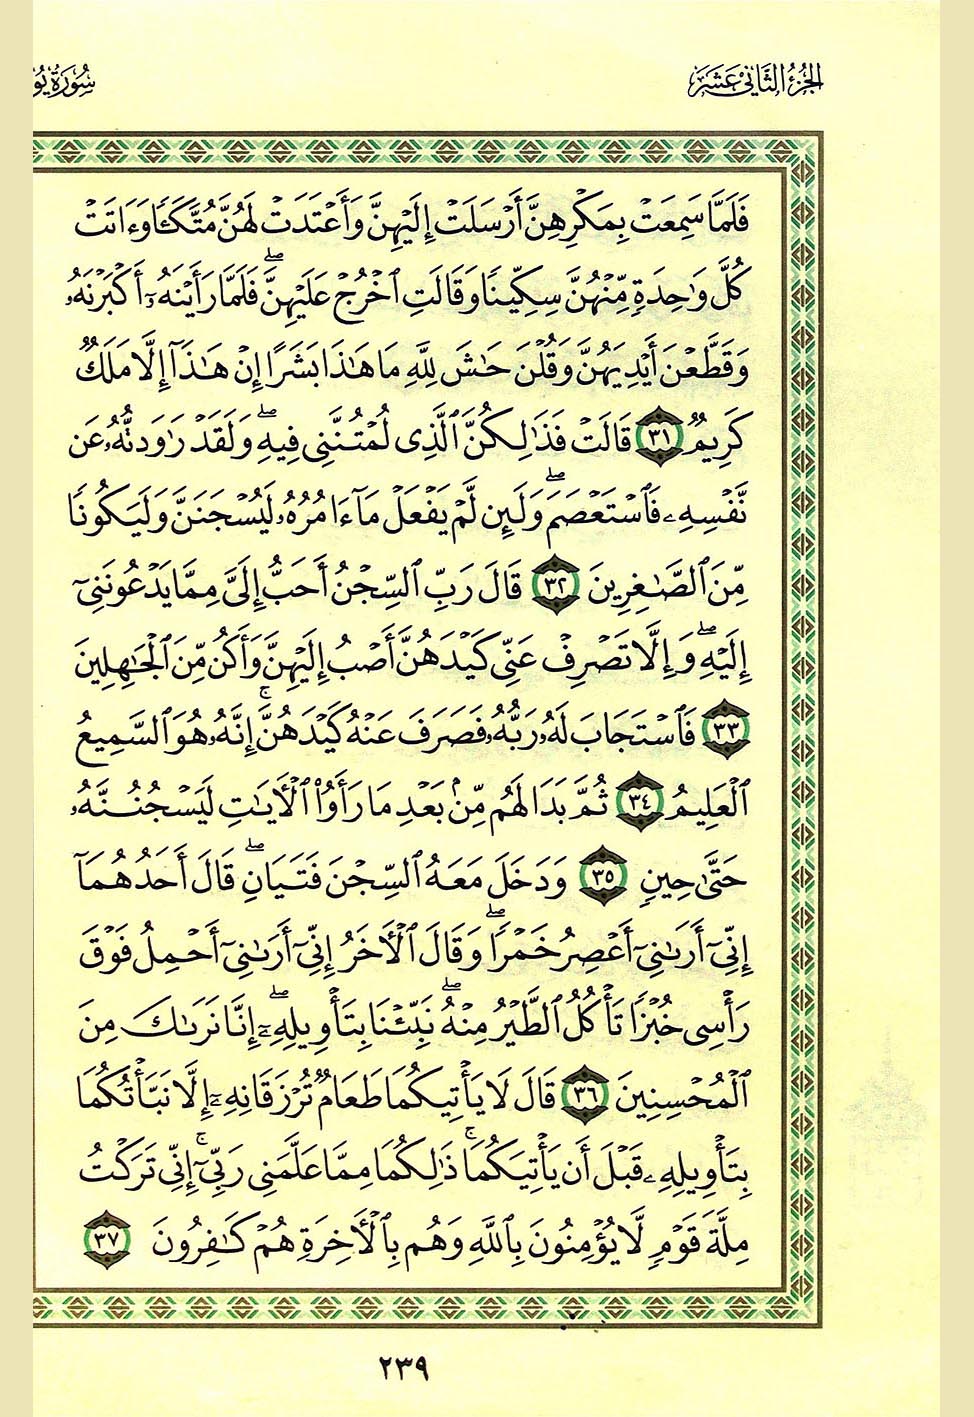 الجزء الثاني عشر
سورة يو
فَلَمَّا سَمِعَتْ بِمَكْرِهِنَّ أَرْسَلَتْ إِلَيْهِنَّ وَأَعْتَدَتْ لَهُنَّ مُتَّكَـًٔا وَءَاتَتْ
كُلَّ وَٰحِدَةٍ مِّنْهُنَّ سِكِّينًا وَقَالَتِ ٱخْرُجْ عَلَيْهِنَّۖ فَلَمَّا رَأَيْنَهُۥٓ أَكْبَرْنَهُۥ
وَقَطَّعْنَ أَيْدِيَهُنَّ وَقُلْنَ حَٰشَ لِلَّهِ مَا هَٰذَا بَشَرًا إِنْ هَٰذَآ إِلَّا مَلَكٌ
كَرِيمٌ ٣١ قَالَتْ فَذَٰلِكُنَّ ٱلَّذِى لُمْتُنَّنِى فِيهِۖ وَلَقَدْ رَٰوَدتُّهُۥ عَن
نَّفْسِهِۦ فَٱسْتَعْصَمَۖ وَلَئِن لَّمْ يَفْعَلْ مَآ ءَامُرُهُۥ لَيُسْجَنَنَّ وَلَيَكُونًا
مِّنَ ٱلصَّٰغِرِينَ ٣٢ قَالَ رَبِّ ٱلسِّجْنُ أَحَبُّ إِلَىَّ مِمَّا يَدْعُونَنِىٓ
إِلَيْهِۖ وَإِلَّا تَصْرِفْ عَنِّى كَيْدَهُنَّ أَصْبُ إِلَيْهِنَّ وَأَكُن مِّنَ ٱلْجَٰهِلِينَ
٣٣ فَٱسْتَجَابَ لَهُۥ رَبُّهُۥ فَصَرَفَ عَنْهُ كَيْدَهُنَّۚ إِنَّهُۥ هُوَ ٱلسَّمِيعُ
ٱلْعَلِيمُ ٣٤ ثُمَّ بَدَا لَهُم مِّنۢ بَعْدِ مَا رَأَوُا۟ ٱلْـَٔايَٰتِ لَيَسْجُنُنَّهُۥ
حَتَّىٰ حِينٍ ٣٥ وَدَخَلَ مَعَهُ ٱلسِّجْنَ فَتَيَانِۖ قَالَ أَحَدُهُمَآ
إِنِّىٓ أَرَىٰنِىٓ أَعْصِرُ خَمْرًاۖ وَقَالَ ٱلْـَٔاخَرُ إِنِّىٓ أَرَىٰنِىٓ أَحْمِلُ فَوْقَ
رَأْسِى خُبْزًا تَأْكُلُ ٱلطَّيْرُ مِنْهُۖ نَبِّئْنَا بِتَأْوِيلِهِۦٓۖ إِنَّا نَرَىٰكَ مِنَ
ٱلْمُحْسِنِينَ ٣٦ قَالَ لَا يَأْتِيكُمَا طَعَامٌ تُرْزَقَانِهِۦٓ إِلَّا نَبَّأْتُكُمَا
بِتَأْوِيلِهِۦ قَبْلَ أَن يَأْتِيَكُمَاۚ ذَٰلِكُمَا مِمَّا عَلَّمَنِى رَبِّىٓۚ إِنِّى تَرَكْتُ
مِلَّةَ قَوْمٍ لَّا يُؤْمِنُونَ بِٱللَّهِ وَهُم بِٱلْـَٔاخِرَةِ هُمْ كَٰفِرُونَ ٣٧
٢٣٩